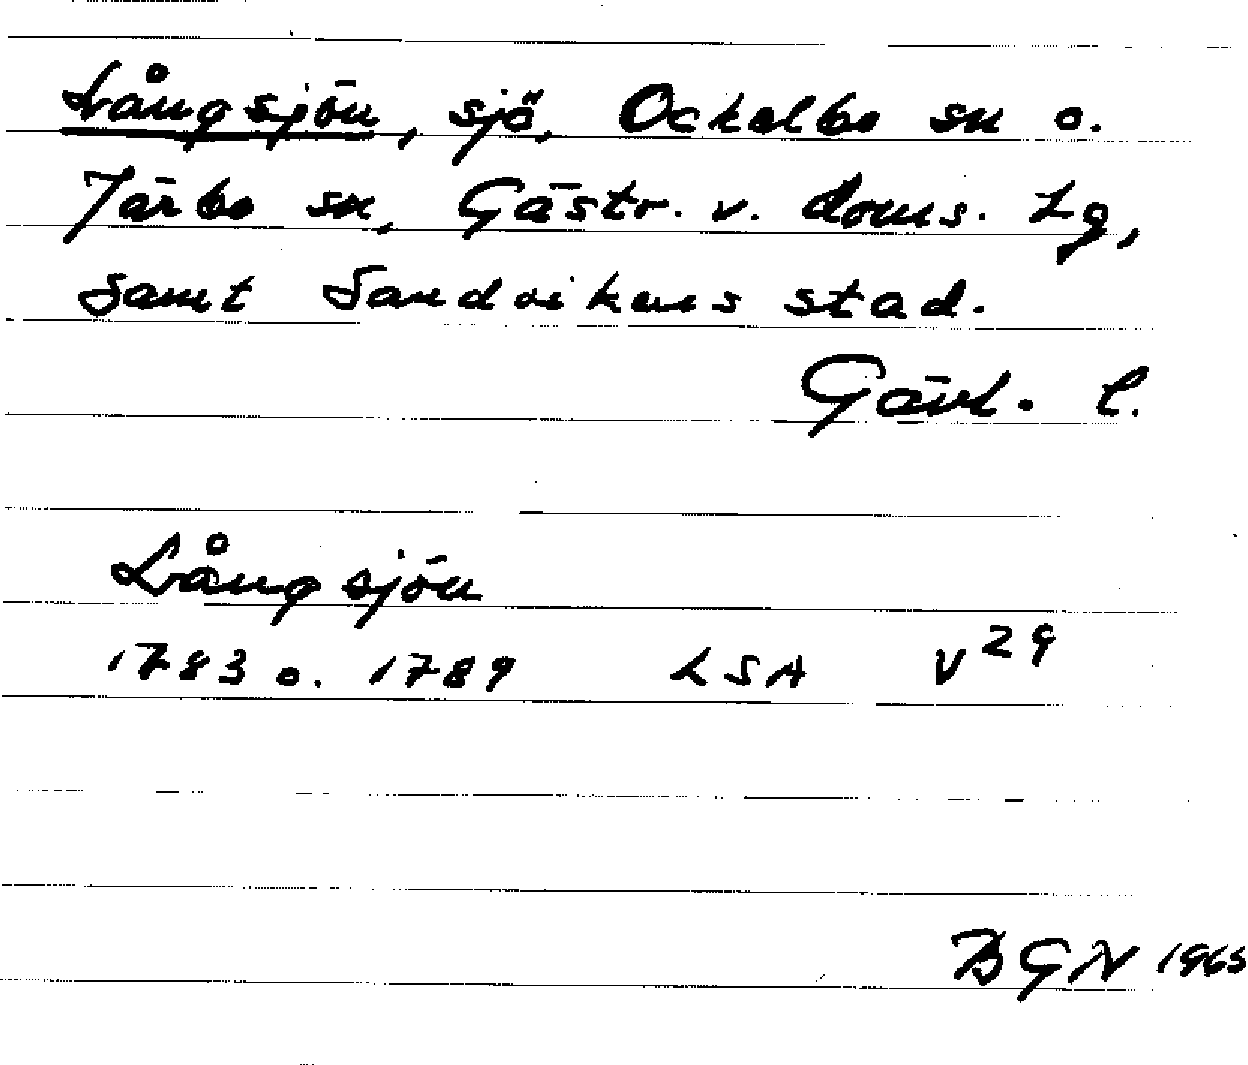 Långsjön, sjö, Ockelbo sn o.
Järbo sn, Gästr. v. doms. Lg,
samt Sandvikens stad.
Gävl. l.
Långsjön
1783 o. 1789 LSA V29
BGN 1965